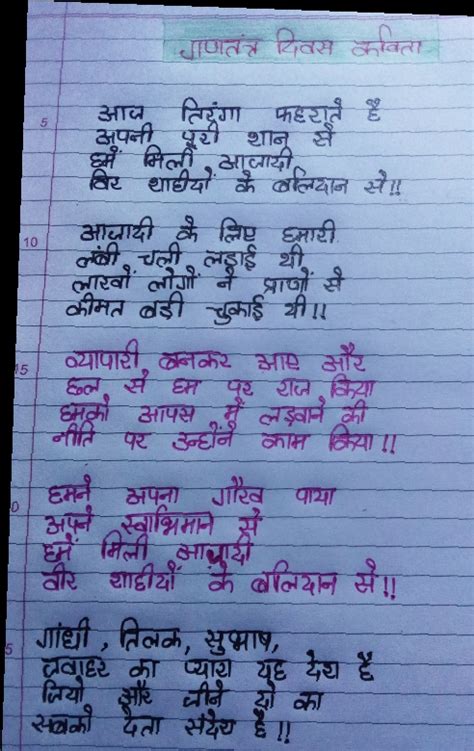 गणतंत्र दिवस कविता
5
आज तिरंगा फहराते है
अपनी पूरी शान से
हमें मिली आजादी
विर शहीदों के बलिदान से!!
10
आजादी के लिए हमारी
लंबी चली लड़ाई थी
लाखों लोगों ने प्राणों से
कीमत बडी चुकाई थी!!
15
व्यापारी बनकर आए और
छल से हम पर राज किया
हमको आपस में लड़वाने की
नीति पर उन्होंने काम किया!!
0
हमने अपना गौरव पाया
अपने स्वाभिमान से
हमें मिली आजादी
वीर शाहीदों के बलिदान से!!
5
गांधी, तिलक, सुभाष,
जवाहर का प्यारा यह देश है
जियो और जीने दो का
सबको देता संदेश है!!